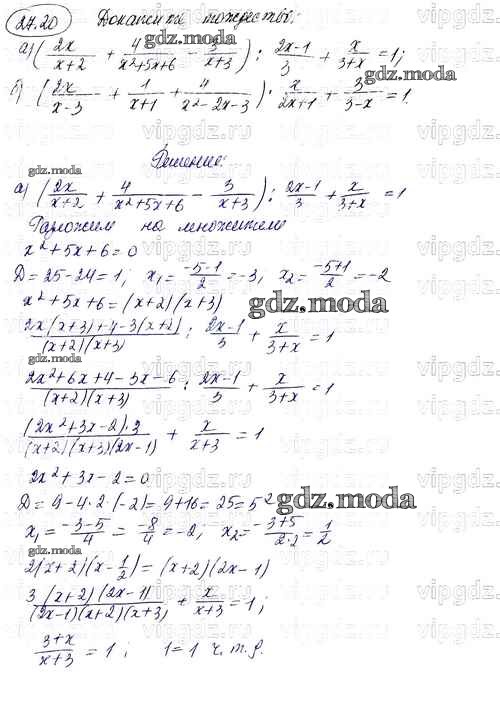 27.20 Докажите тождество:
а) (2x/(x+2) + 4/(x²+5x+6) - 3/(x+3)) : (2x-1)/3 + x/(3+x) = 1;
б) (2x/(x-3) + 1/(x+1) + 4/(x²-2x-3)) : x/(2x+1) + 3/(3-x) = 1.
Решение:
а) (2x/(x+2) + 4/(x²+5x+6) - 3/(x+3)) : (2x-1)/3 + x/(3+x) = 1
Разложим на множители
x²+5x+6=0
D=25-24=1; x₁=(-5-1)/2=-3, x₂=(-5+1)/2=-2
x²+5x+6=(x+2)(x+3)
(2x(x+3)+4-3(x+2))/((x+2)(x+3)) : (2x-1)/3 + x/(3+x) = 1
(2x²+6x+4-3x-6)/((x+2)(x+3)) : (2x-1)/3 + x/(3+x) = 1
((2x²+3x-2)·3)/((x+2)(x+3)(2x-1)) + x/(x+3) = 1
2x²+3x-2=0
D=9-4·2·(-2)=9+16=25=5²
x₁=(-3-5)/4=-8/4=-2; x₂=(-3+5)/(2·2)=1/2
2(x+2)(x-1/2)=(x+2)(2x-1)
(3(x+2)(2x-1))/((2x-1)(x+2)(x+3)) + x/(x+3) = 1;
(3+x)/(x+3) = 1; 1=1 ч.т.д.
gdz.moda
vipgdz